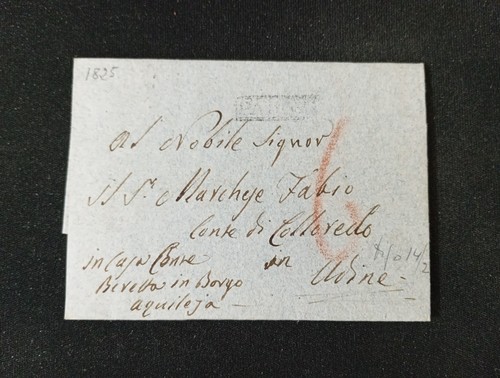 1825
Al Nobile Signor
Il Sr. Marchese Fabio
Conte di Colloredo
in Casa Conte in
Beretta in Borgo Udine
aquileja
6